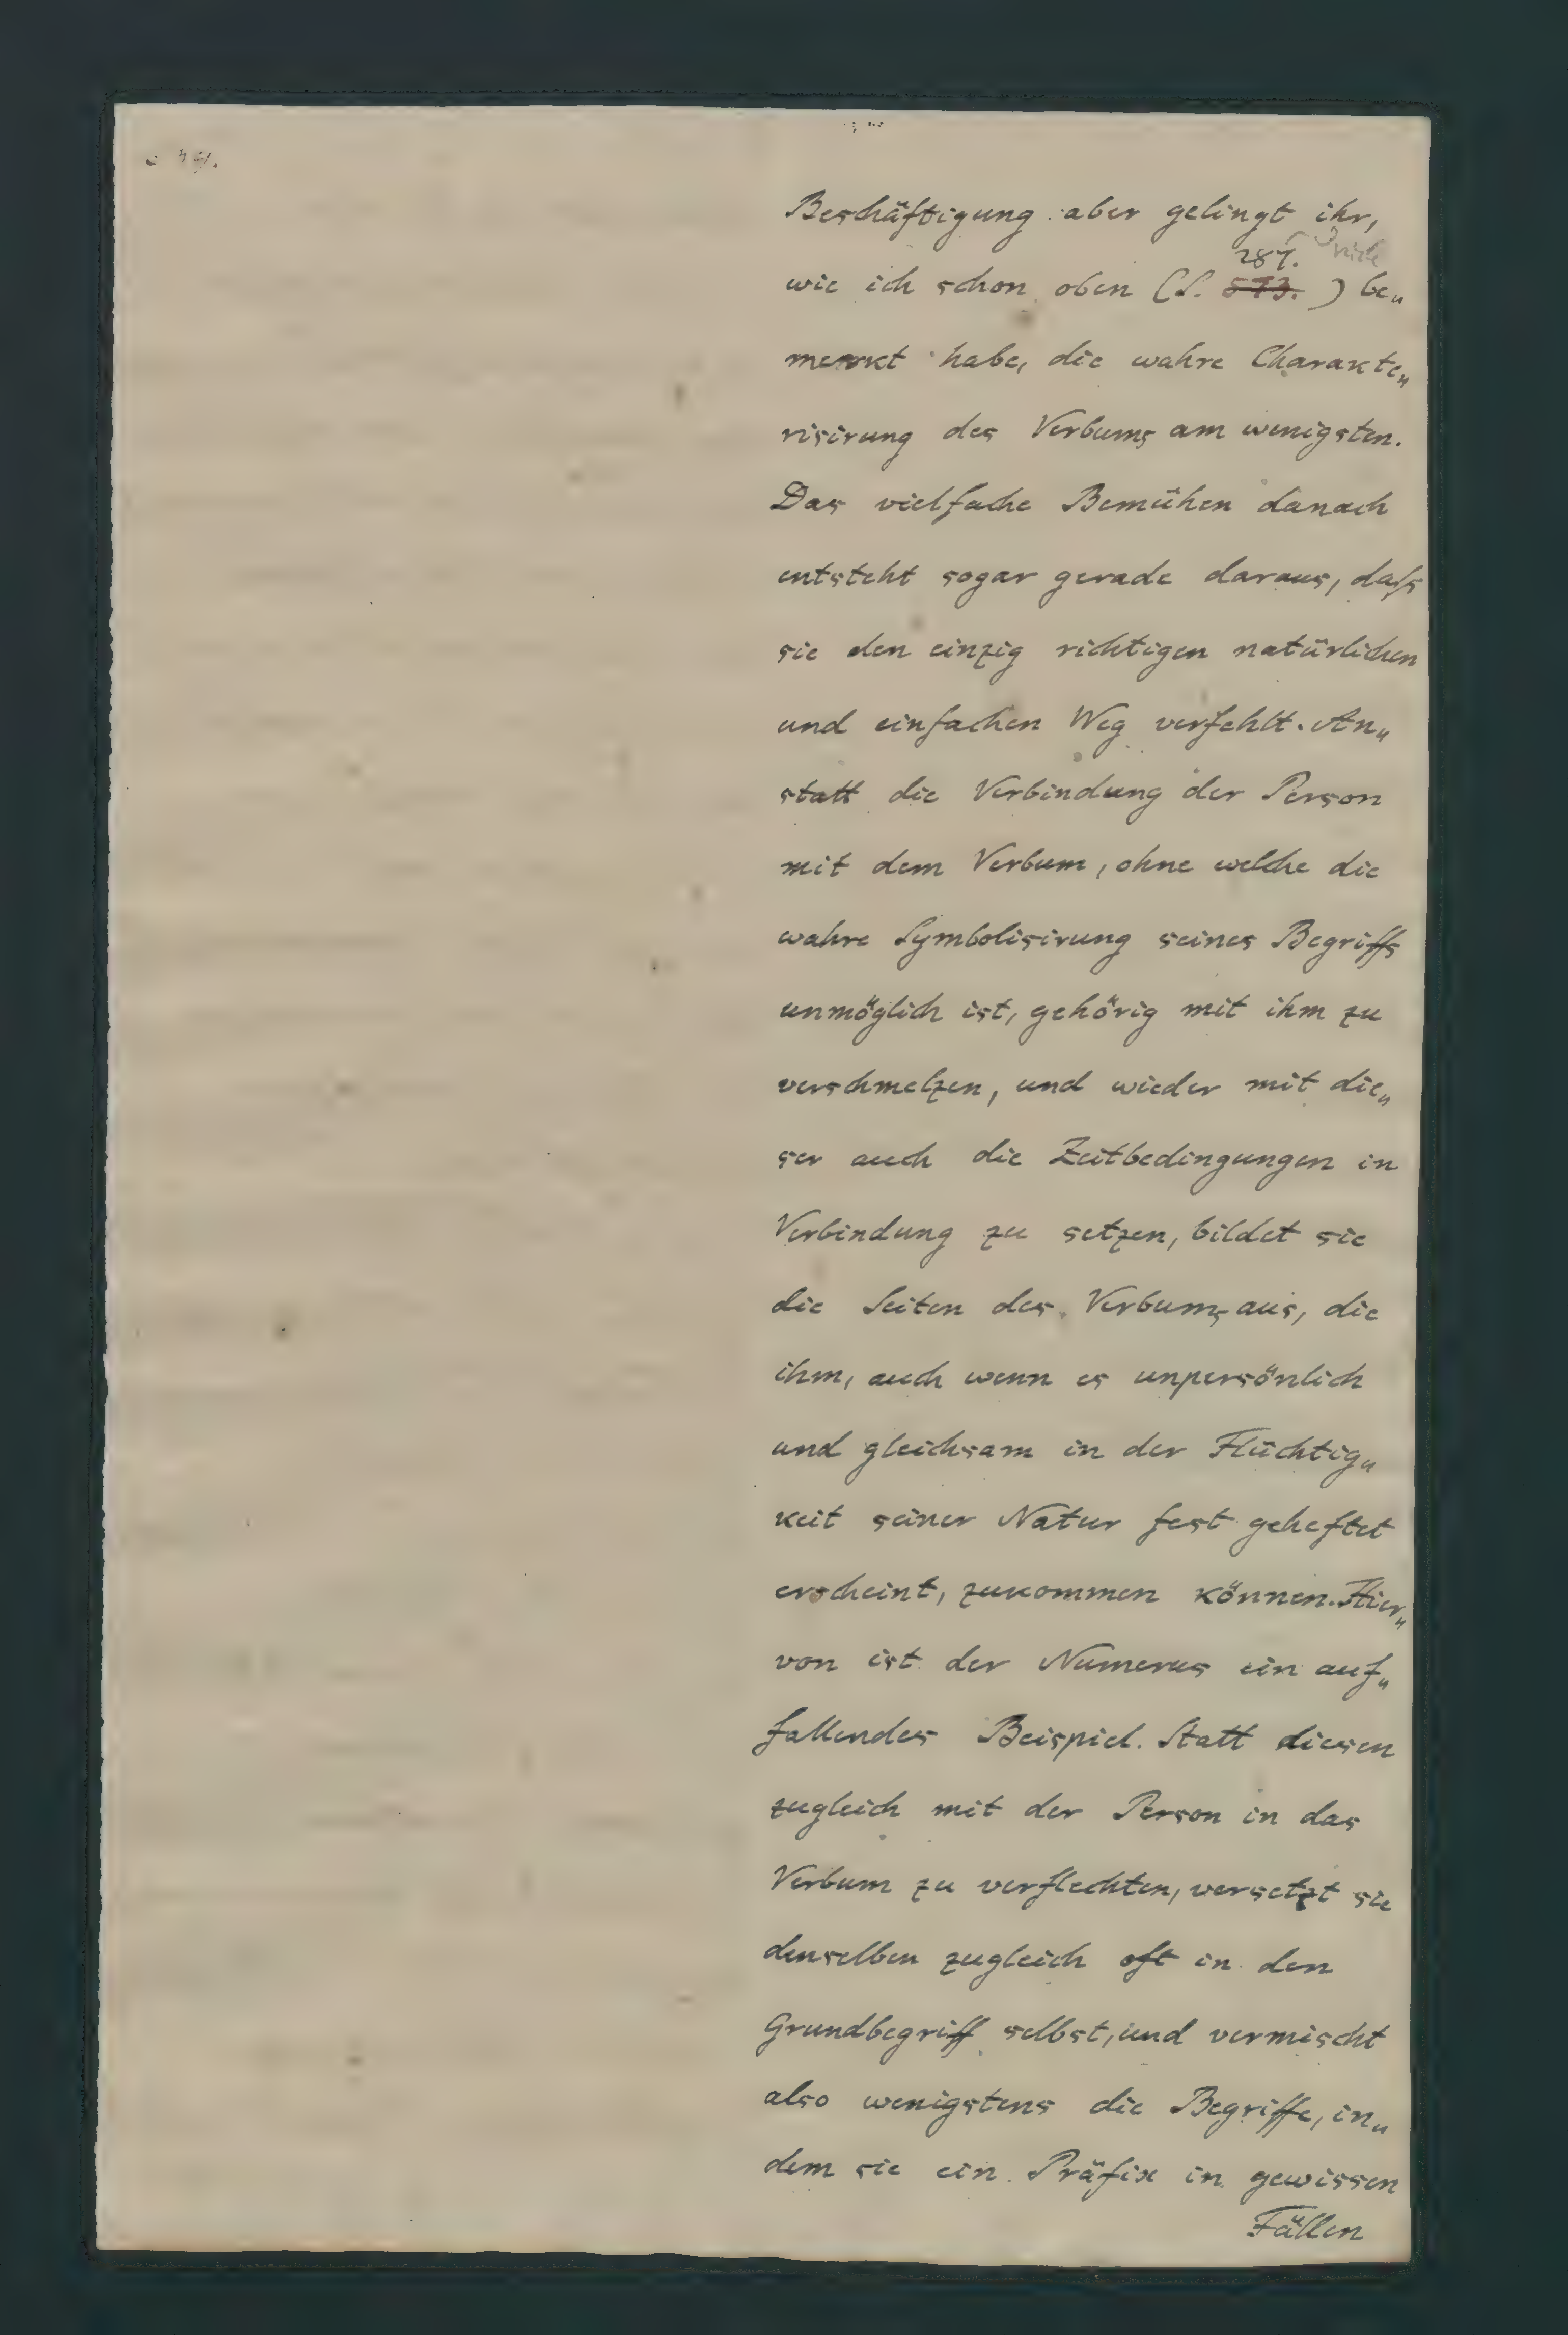 Beschäftigung aber gelingt ihr,
287.
wie ich schon oben (S. 573.) be„
merkt habe, die wahre Charakte„
risirung des Verbums am wenigsten.
Das vielfache Bemühen danach
entsteht sogar gerade daraus, daſs
sie den einzig richtigen natürlichen
und einfachen Weg verfehlt. An„
statt die Verbindung der Person
mit dem Verbum, ohne welche die
wahre Symbolisirung seines Begriffs
unmöglich ist, gehörig mit ihm zu
verschmelzen, und wieder mit die„
ser auch die Zeitbedingungen in
Verbindung zu setzen, bildet sie
die Seiten des Verbums aus, die
ihm, auch wenn es unpersönlich
und gleichsam in der Flüchtig„
keit seiner Natur fest geheftet
erscheint, zukommen können. Hier„
von ist der Numerus ein auf„
fallendes Beispiel. Statt diesen
zugleich mit der Person in das
Verbum zu verflechten, versetzt sie
denselben zugleich oft in den
Grundbegriff selbst, und vermischt
also wenigstens die Begriffe, in„
dem sie ein Präfix in gewissen
Fällen